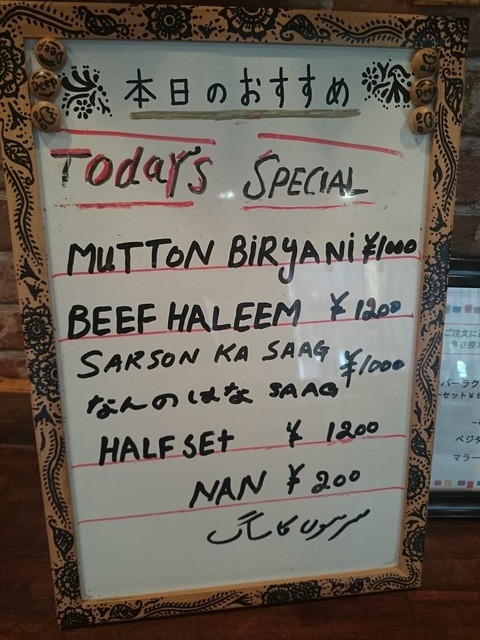 本日のおすすめ
Today's SPECIAL
MUTTON BIRYANI ¥1000
BEEF HALEEM ¥ 1200
SARSON KA SAAG ¥1000
なんのはな SAAG
HALF SET ¥ 1200
NAN ¥ 200
سرسوں کا ساگ
ご注文に
バーラク
セット¥8
ベジタ
マラー